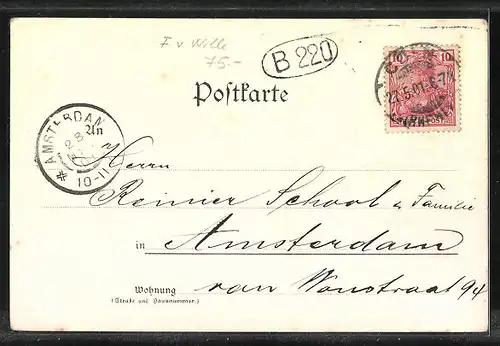 F v Wille
75.-
B 220
Postkarte
10 10
27.5.01. 6-7N
AMSTERDAM
28
10-11
An
Herrn
Reinier School & Familie
in Amsterdam
Wohnung van Woustraat 94
(Straße und Hausnummer.)